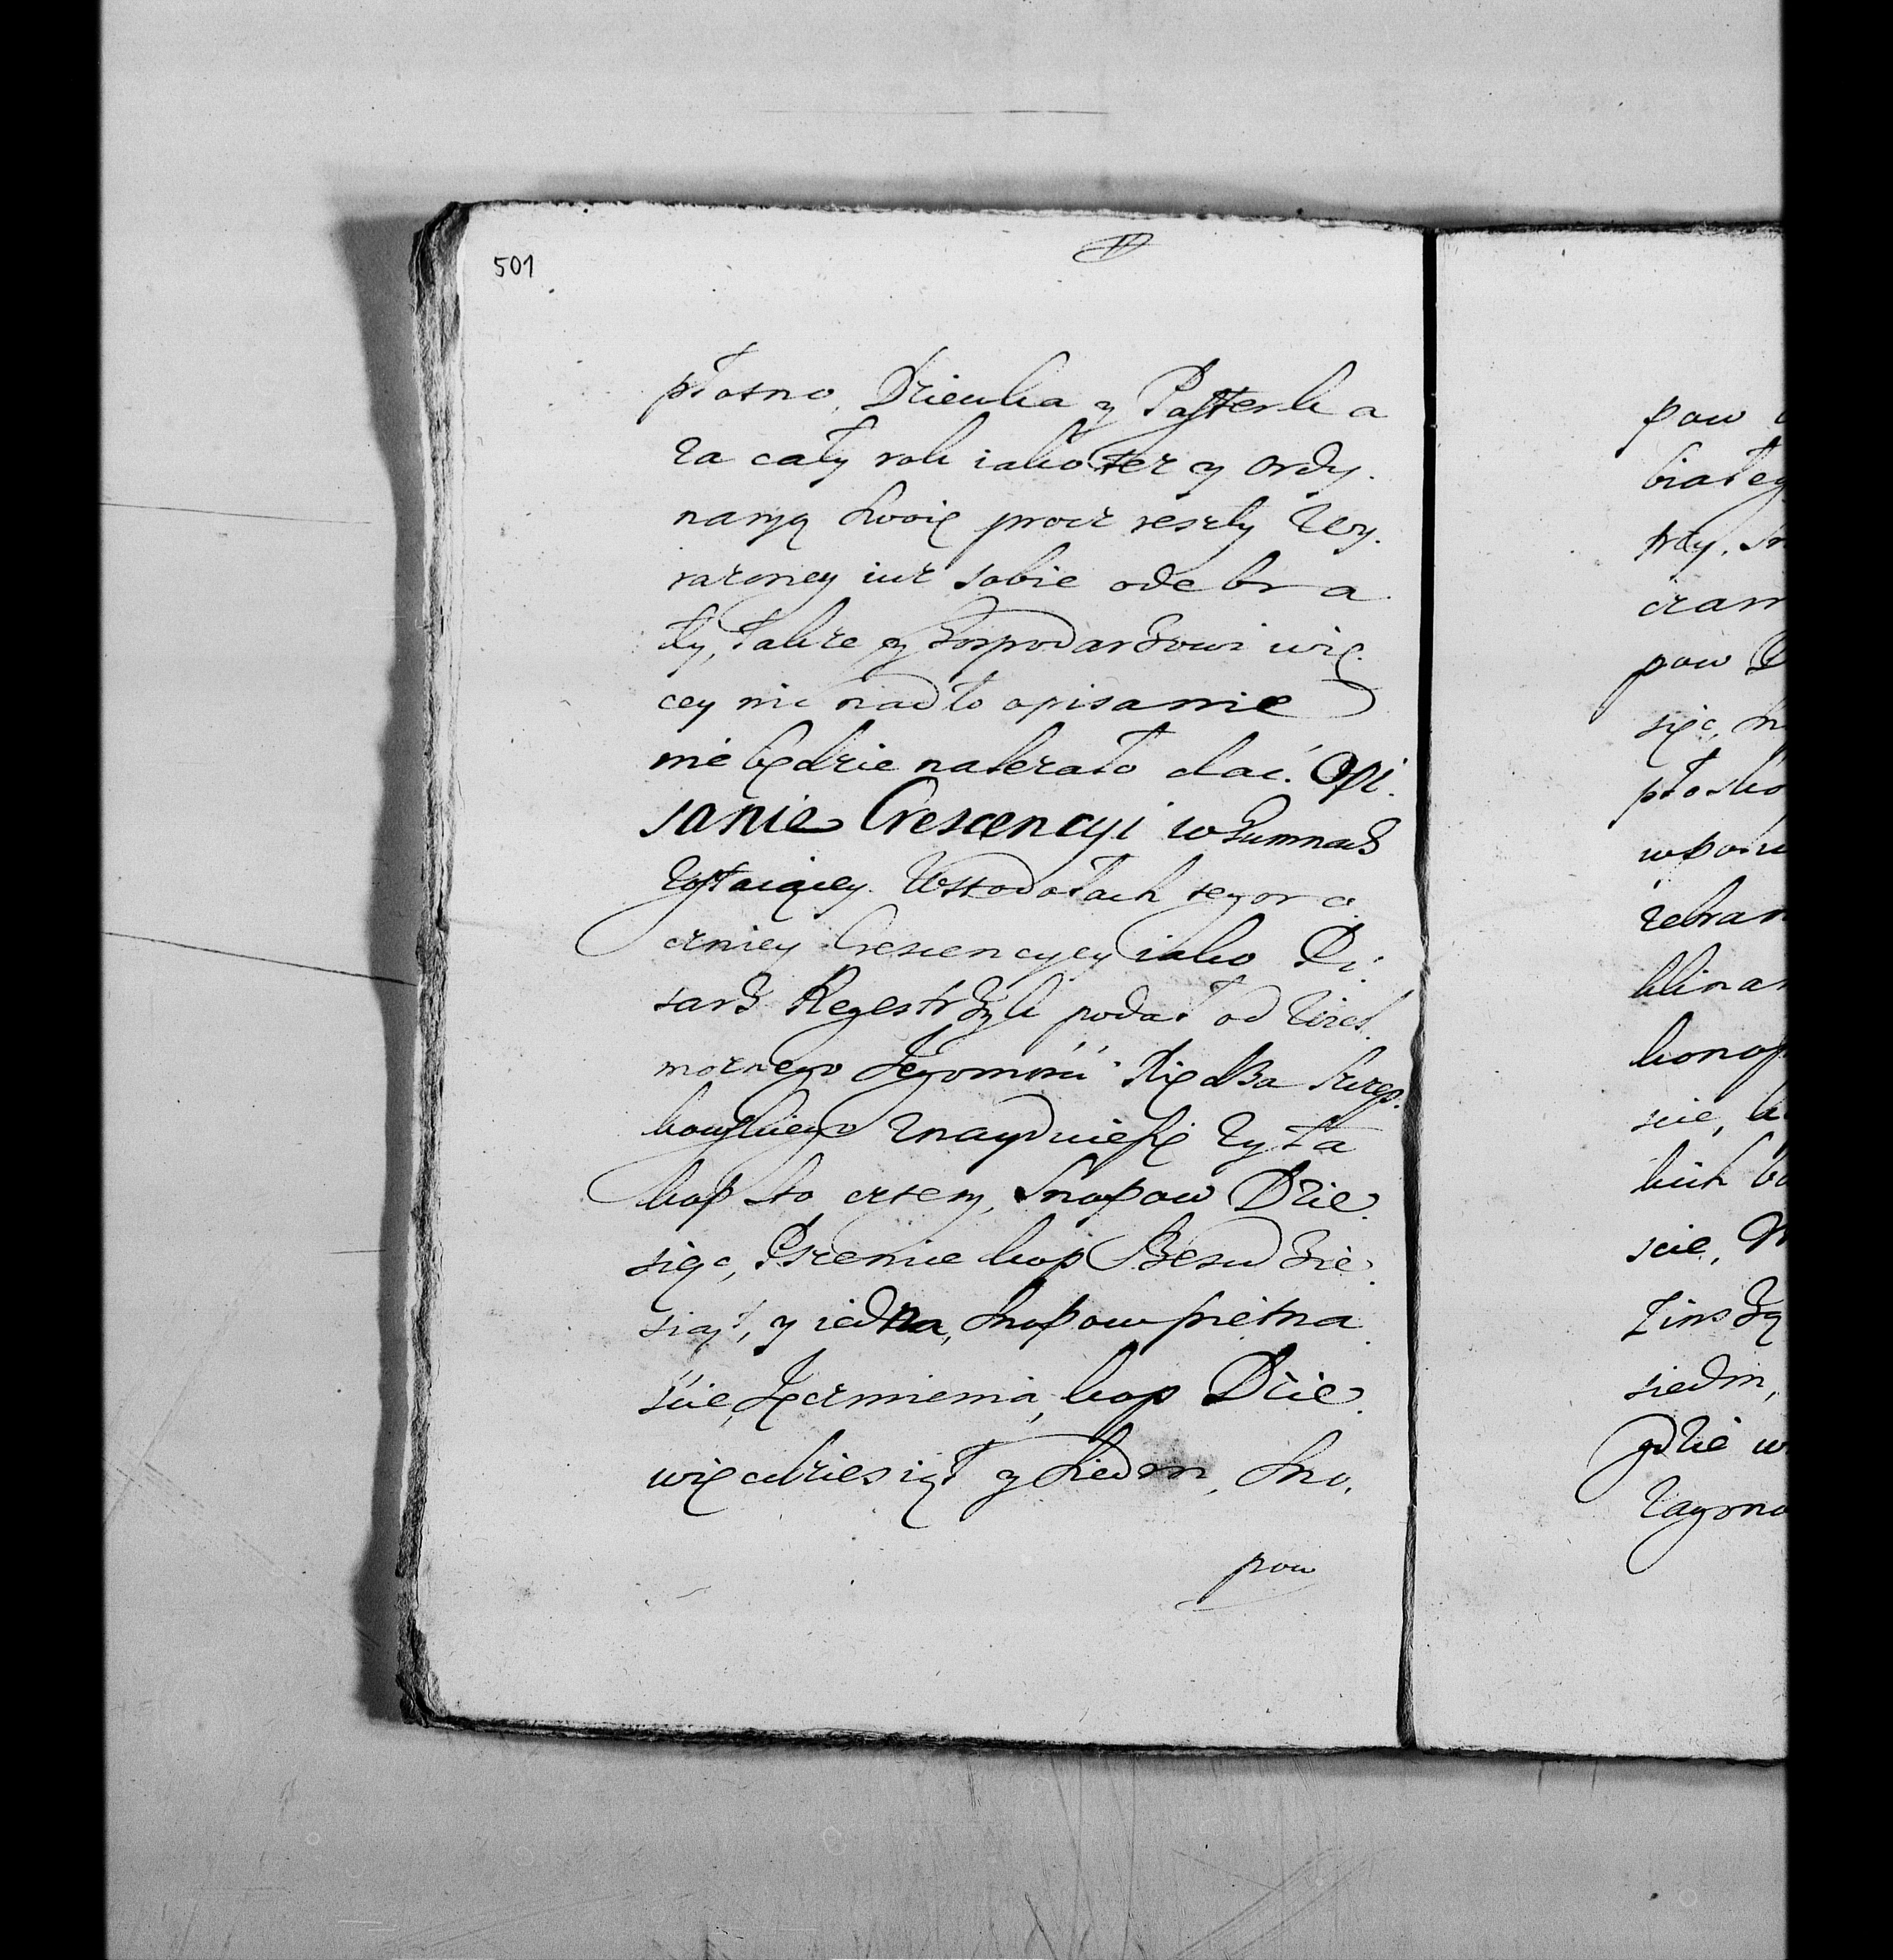 501
płotno, Dziewka y Pasterka
za cały rok iako tez y ordy.
naryą swoię procz reszty Wy.
razoney iuz sobie odebra
ły, takze y Gospodarzowi wię.
cey nic nad to opisanie
nie będzie nalezało dać. Opi.
sanie Crescencyi w Gumnach
Zostaiącey. W stodołach tegoro
czniey Crescencyey iako Pi.
sarz Regestrzyk podał od Wiel.
moznego Jegomości Xiędza Szczep.
kowskiego Znayduie się Zyta
kop sto cztery, Snopow Dzie.
sięć, Pszenice kop Szesździe.
siąt, y iedna, Snopow pietna.
ście, Jęczmienia, kop Dzie.
więcdziesiąt y siedm, Sno.
pow
pow
białeg
trzy, sn
czam
pow D
sięć, sn
płosko
w poszu
zebran
klinam
konop
scie, k
kich bo
scie, M
siedm,
gdzie w
Zagono